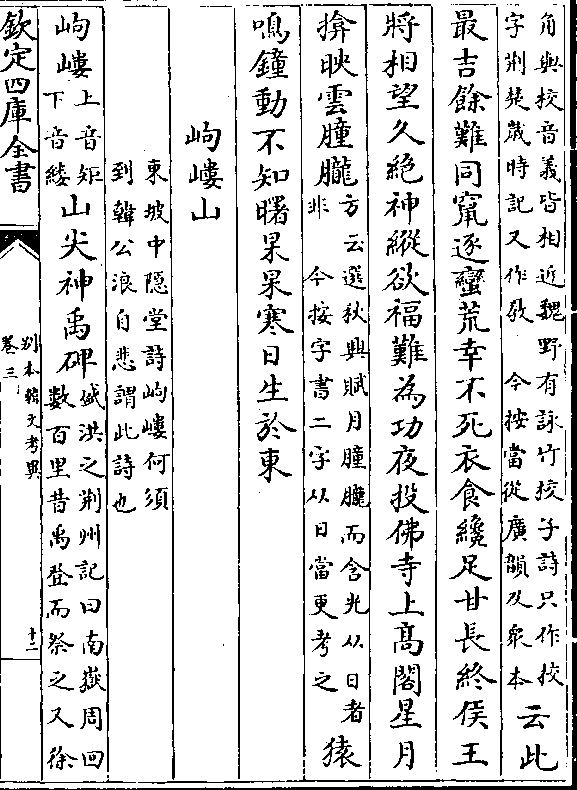 角與校音義皆相近魏野有詠竹挍子詩只作挍
字荆楚歲時記又作敎　今按當從廣韻及衆本云此
最吉餘難同竄逐蠻荒幸不死衣食纔足甘長終侯王
將相望久絶神縱欲福難為功夜投佛寺上髙閣星月
揜映雲朣朧方云選秋興賦月朣朧而含光从日者
非　今按字書二字从日當更考之猿
鳴鐘動不知曙杲杲寒日生於東
岣嶁山
東坡中隠堂詩岣嶁何須
到韓公浪自悲謂此詩也
岣嶁上音矩
下音縷山尖神禹碑盛洪之荆州記曰南嶽周回
數百里昔禹登而祭之又徐
欽定四庫全書
别本韓文考異
卷三
十二